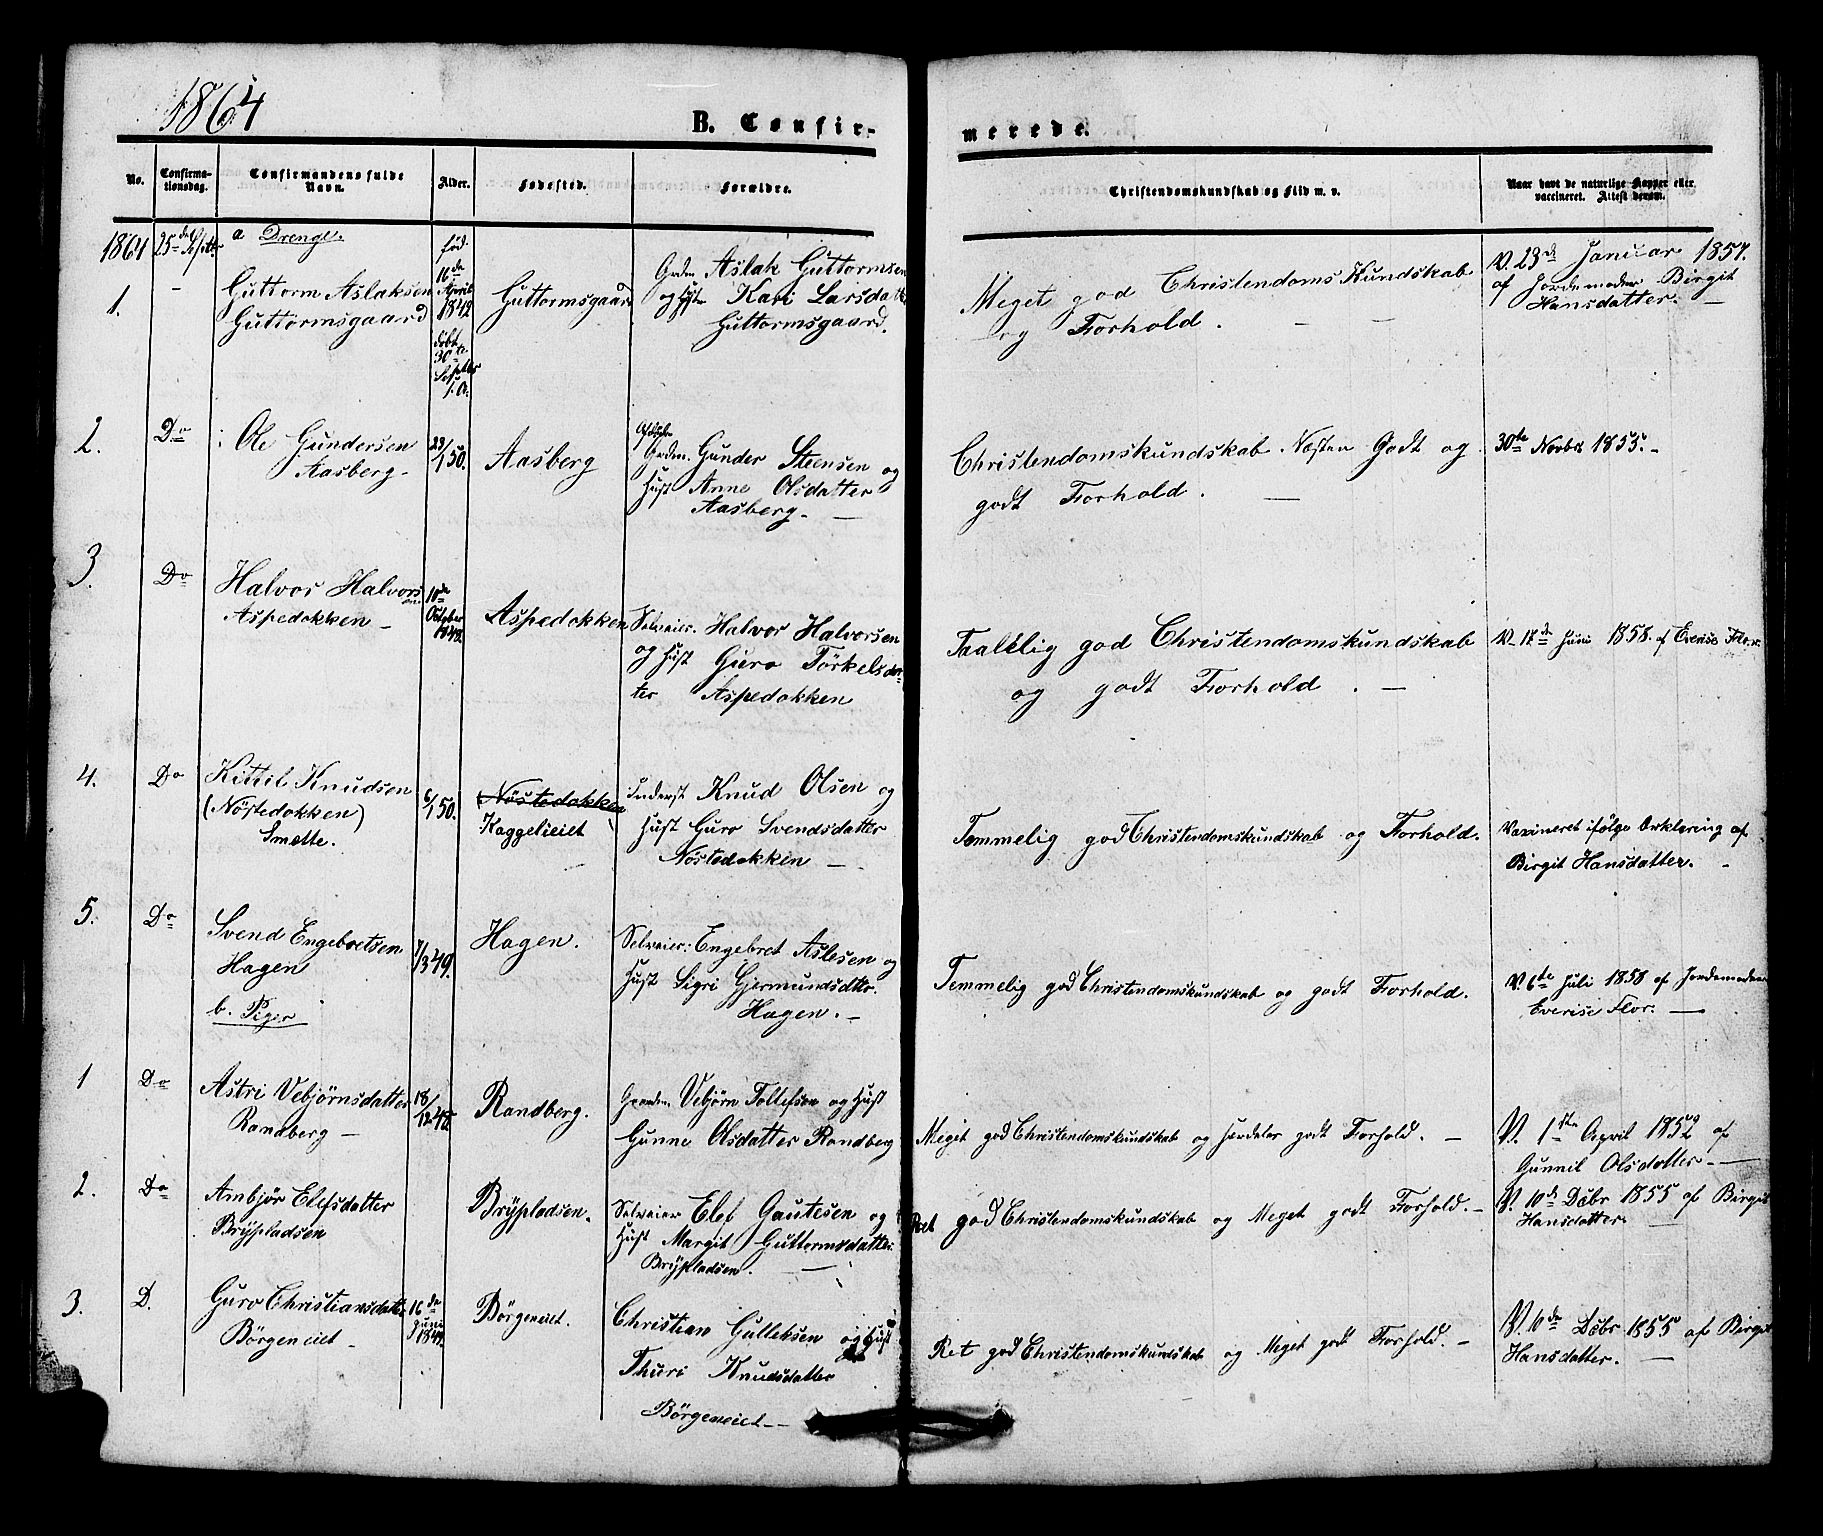 1864
B. Confir-
merede.
No.
Confirma-
tionsdag.
Confirmandens fulde
Navn.
Alder.
Fødested.
Forældre.
Christendomskundskab og Flid m. v.
Naar havt de naturlige Kopper eller
vaccineret. Attest derom.
1864
25de Septbr
a Drenge.
1.
Guttorm Aslaksen
Guttormsgaard
fød
16de
April
1849
døbt
30te
Septbr
s. A.
Guttormsgaard
Grdm Aslak Guttormsen
og Hst Kari Larsdatter
Guttormsgaard.
Meget god Christendoms Kundskab
og Forhold.
V. 23de Januar 1857.
af Jordemoder Birgit
Hansdatter.
2.
Do
Ole Gundersen
Aasberg
23/1 50.
Aasberg
Grdm. Gunder Steensen og
Hust Anne Olsdatter
Aasberg.
Christendomskundskab Næsten Godt og
godt Forhold.
30te Novbr 1855.
3.
Do
Halvor Halvors
en
Aspedokken
October
1849.
Aspedokken
Selveier. Halvor Halvorsen
og Hust Guro Torkelsdat-
ter Aspedokken
Taallelig god Christendomskundskab
og godt Forhold.
V. 18de Juni 1858. af Everise Flor.
4.
Do
Kittil Knudsen
(Nöstedokken)
Smette.
6/1 50.
(Nöstedokken
Kaggelieiet
Inderst Knud Olsen og
Hust Guro Svendsdatter
Nöstedokken
Temmelig god Christendomskundskab og Forhold.
Vaxineret ifölge Erklæring af
Birgit Hansdatter.
5.
Do
Svend Engebretsen
Hagen
7/3 49.
Hagen.
Selveier: Engebret Aslesen og
Hust Sigri Gjermundsdtr.
Hagen.
Temmelig god Christendomskundskab og godt Forhold.
V. 6te Juli 1858 af Jordemoder
Everise Flor.
b. Piger
1
Do
Astri Vebjørnsdatter
Randberg
18/12 48.
Randberg.
Vebjørn Tollefsen og Hust
Gunne Olsdatter Randberg
Meget god Christendomskundskab og godt Forhold.
V. 1ste April 1852 af
Gunnil Olsdatter.
2.
Do
Ambjør Elefsdatter
Brypladsen
Brypladsen.
Selveier Elef Gautesen og
Hust Margit Guttormsdatter
Brypladsen.
Ret god Christendomskundskab og Meget godt Forhold.
V. 10de Dcbr 1855 af Birgit
Hansdatter.
3.
D.
Guro Christiansdatter
Börgeneiet
16de
Juni
1849.
Börgeneiet.
Christian Gulleksen og Hust
Thuri Knudsdatter
Börgeneiet
Ret god Christendomskundskab og Meget godt Forhold.
V. 6de Dcbr 1855 af Birgit
Hansdatter.